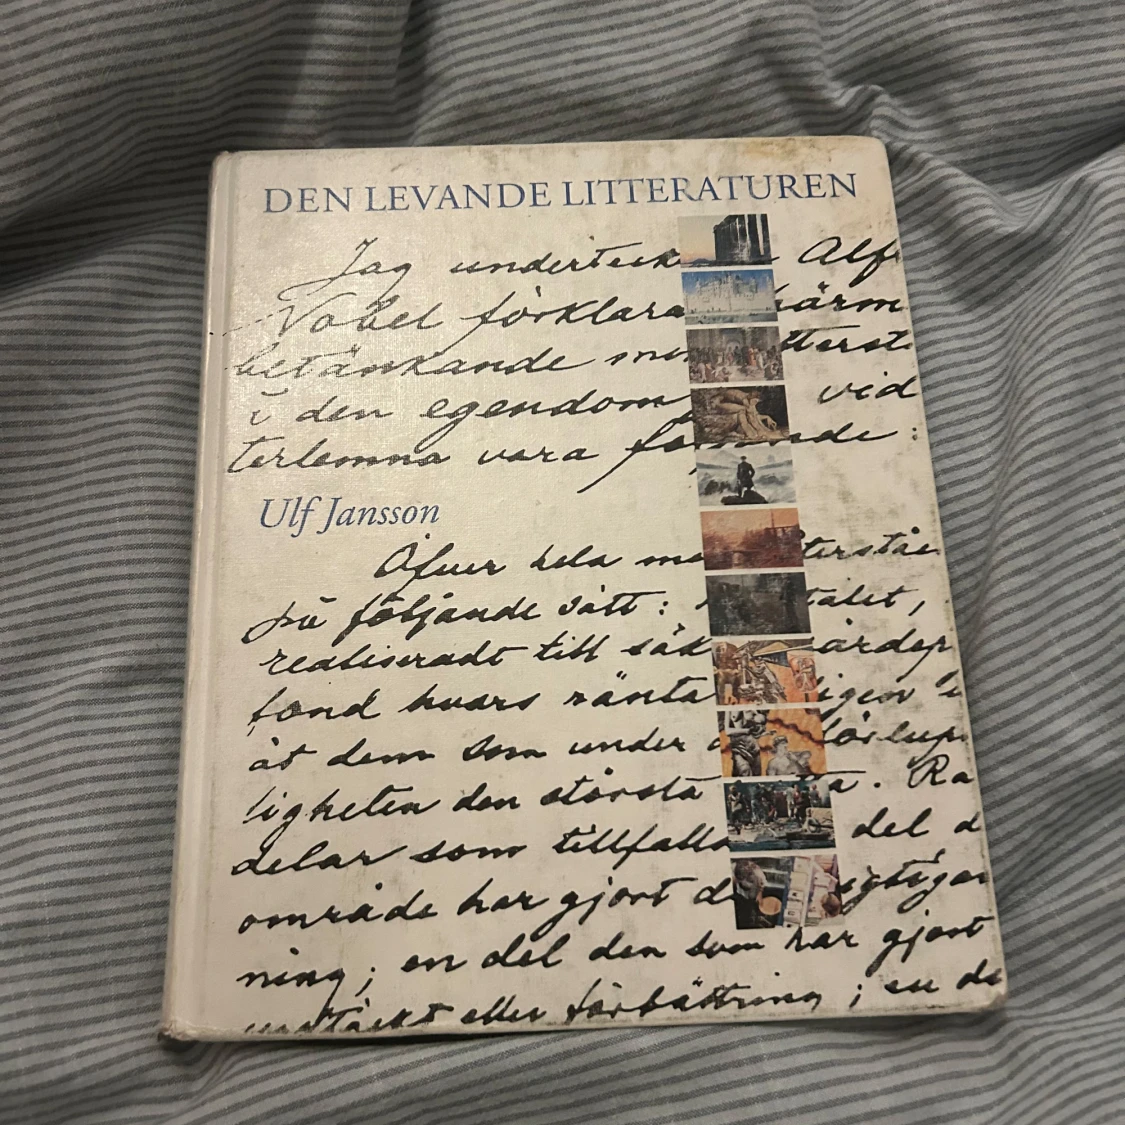 DEN LEVANDE LITTERATUREN
Jag underteck Alf
Nobel förklara härm
betänkande me tterst
i den egendom vid
terlemna vara fö nde:
Ulf Jansson
Öfver hela me terståe
på följande sätt: talet,
realiseradt till säk ärdep
fond hvars ränta ligen
åt dem som under förlup
ligheten den största a. Ra
delar som tillfalla del d
område har gjort d igtigas
ning; en del den som har gjort
eller förbättring; en de